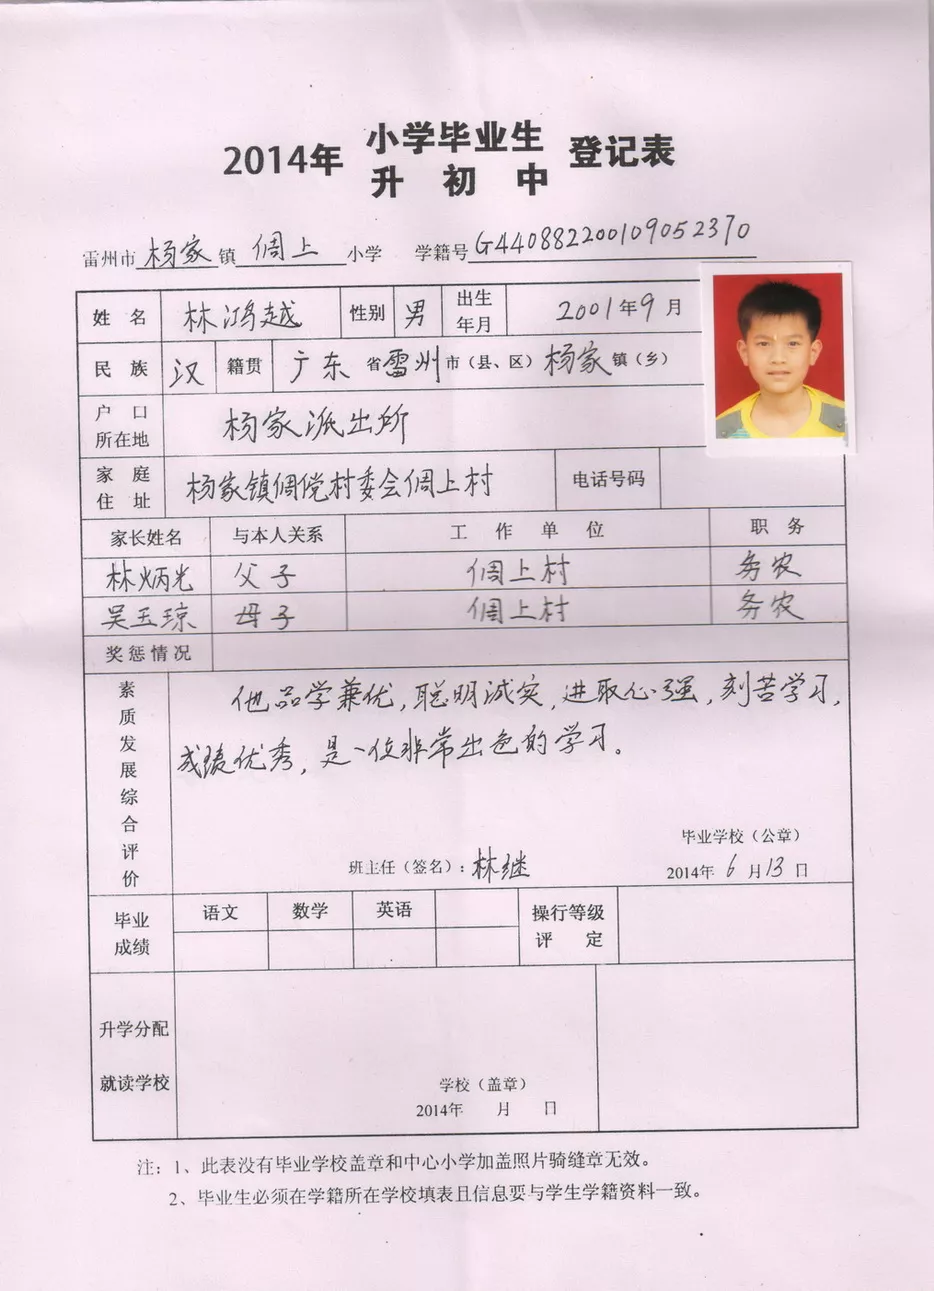 2014年 小学毕业生 登记表
升初中
雷州市杨家镇倜上小学 学籍号G440882200109052370
姓名 林鸿越 性别 男 出生年月 2001年9月
民族 汉 籍贯 广东省雷州市（县、区）杨家镇（乡）
户口所在地 杨家派出所
家庭住址 杨家镇倜党村委会倜上村 电话号码
家长姓名 与本人关系 工作单位 职务
林炳光 父子 倜上村 务农
吴玉琼 母子 倜上村 务农
奖惩情况
素质发展综合评价
他品学兼优，聪明诚实，进取心强，刻苦学习，
成绩优秀，是一位非常出色的学习。
毕业学校（公章）
班主任（签名）：林继 2014年6月13日
毕业成绩 语文 数学 英语 操行等级评定
升学分配
就读学校
学校（盖章）
2014年 月 日
注：1、此表没有毕业学校盖章和中心小学加盖照片骑缝章无效。
2、毕业生必须在学籍所在学校填表且信息要与学生学籍资料一致。